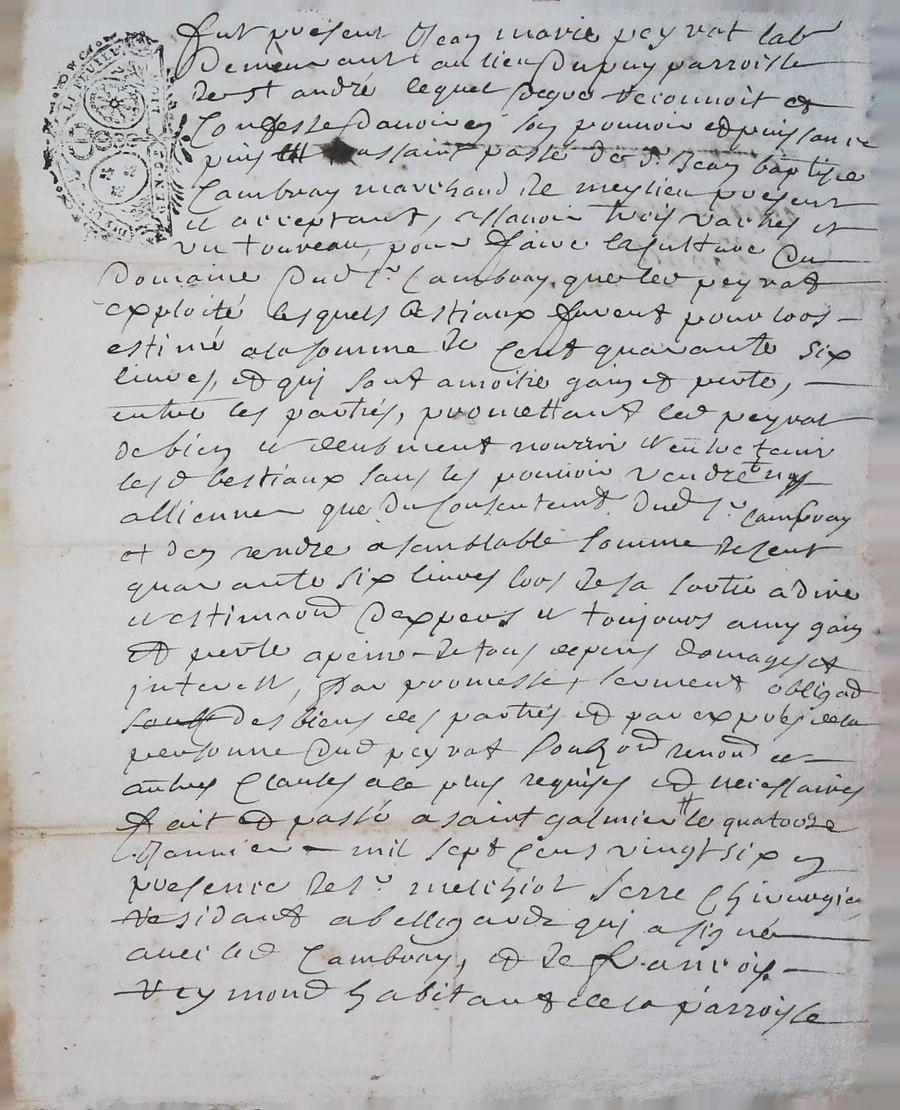 fut présent Jean marie peyrat lab
Demeurant au lieu Dupuy parroisse
de st andré lequel de gré reconnoit et
Confesse d'avoir en son pouvoir et puissance
puis la toussaint passé de sr. Jean baptiste
Cambray marchand de meylieu présent
et acceptant, assavoir trois vaches et
un toureau, pour faire la culture Du
Domaine Dud sr. Cambray, que led peyrat
exploité lesquels bestiaux furent pour lors
estimé a la somme de Cent quarante six
livres, et qui sont amoitié gain et perte,
entre les parties, promettant led peyrat
de bien et deubment nourrir et entretenir
lesd bestiaux sans les pouvoir vendre ny
alliener que du Consentent. Dud sr. Cambray
et d'en rendre a semblable somme de cent
quarante six livres lors de sa sortie a dire
et estimaon d'expers et toujours a my gain
et perte a peine de tous depens domages et
interest, Par promesse, serment obligaon
des biens des parties et par exprés de la
personne Dud peyrat renon et
autres Clauses a ce plus requises et necessaires
fait et passé a saint galmier le quatorze
Janvier mil sept Cens vingt six en
presence de sr. melchiol serre Chirurgien
residant a bellegarde qui a signé
avec led Cambray, et de françois
reymond habitant de la parroisse